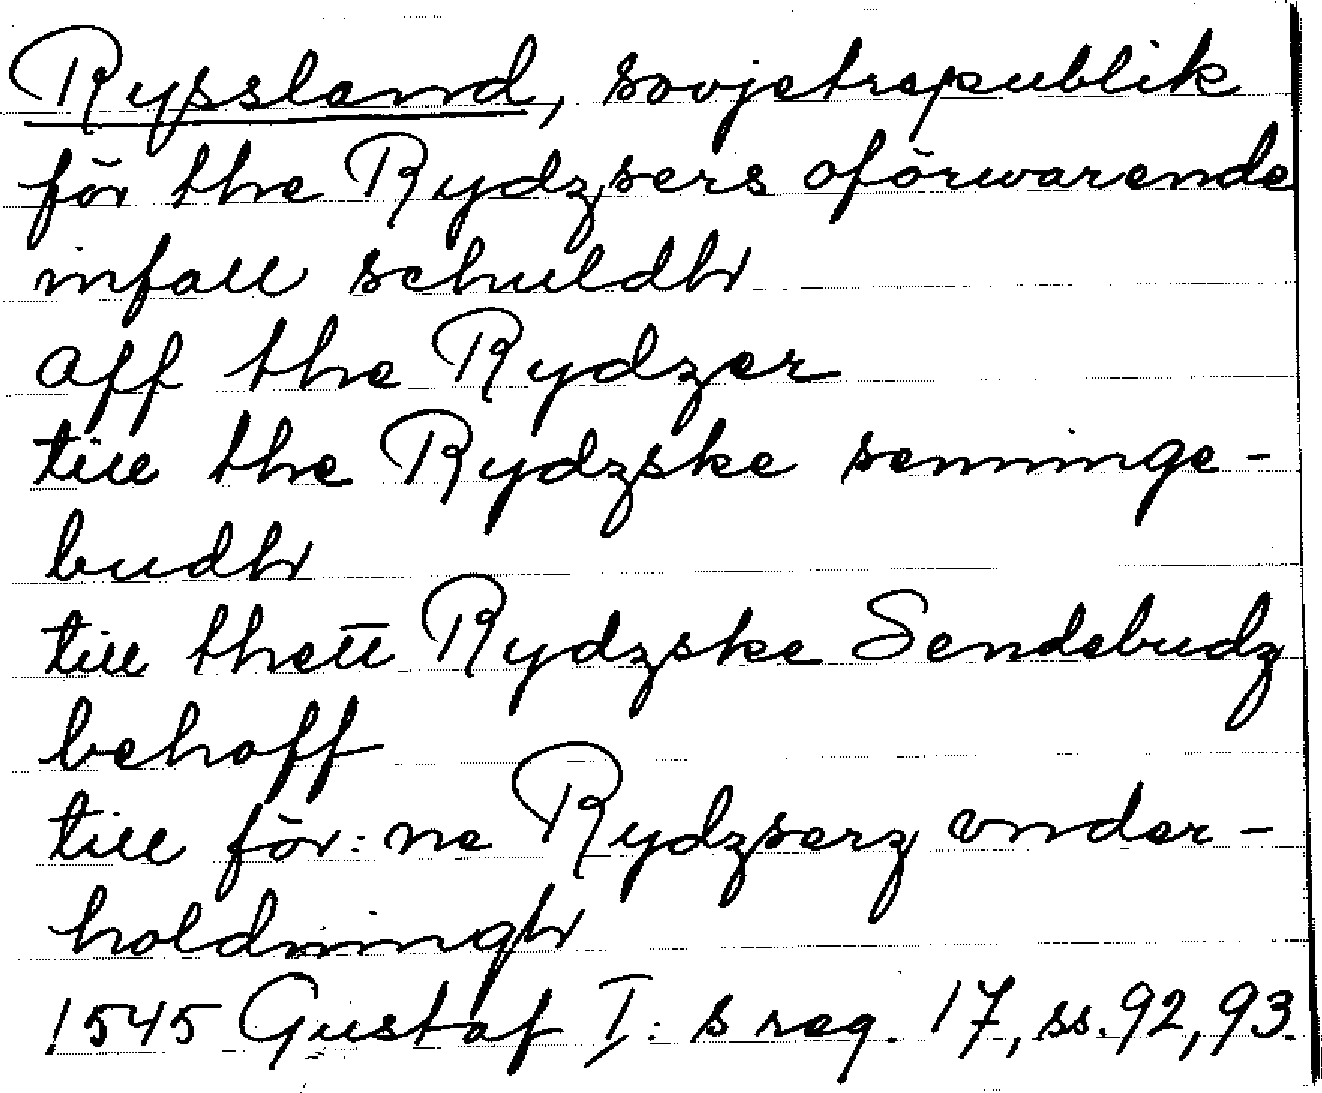 Ryssland, sovjetrepublik
för the Rydzsers oförwarende
infall schuldh
aff the Rydzer
till the Rydzske senninge-
budh
till thett Rydzske Sendebudz
behoff
till för: ne Rydzserz vnder-
holdningh
1545 Gustaf I: s reg. 17, ss. 92, 93.